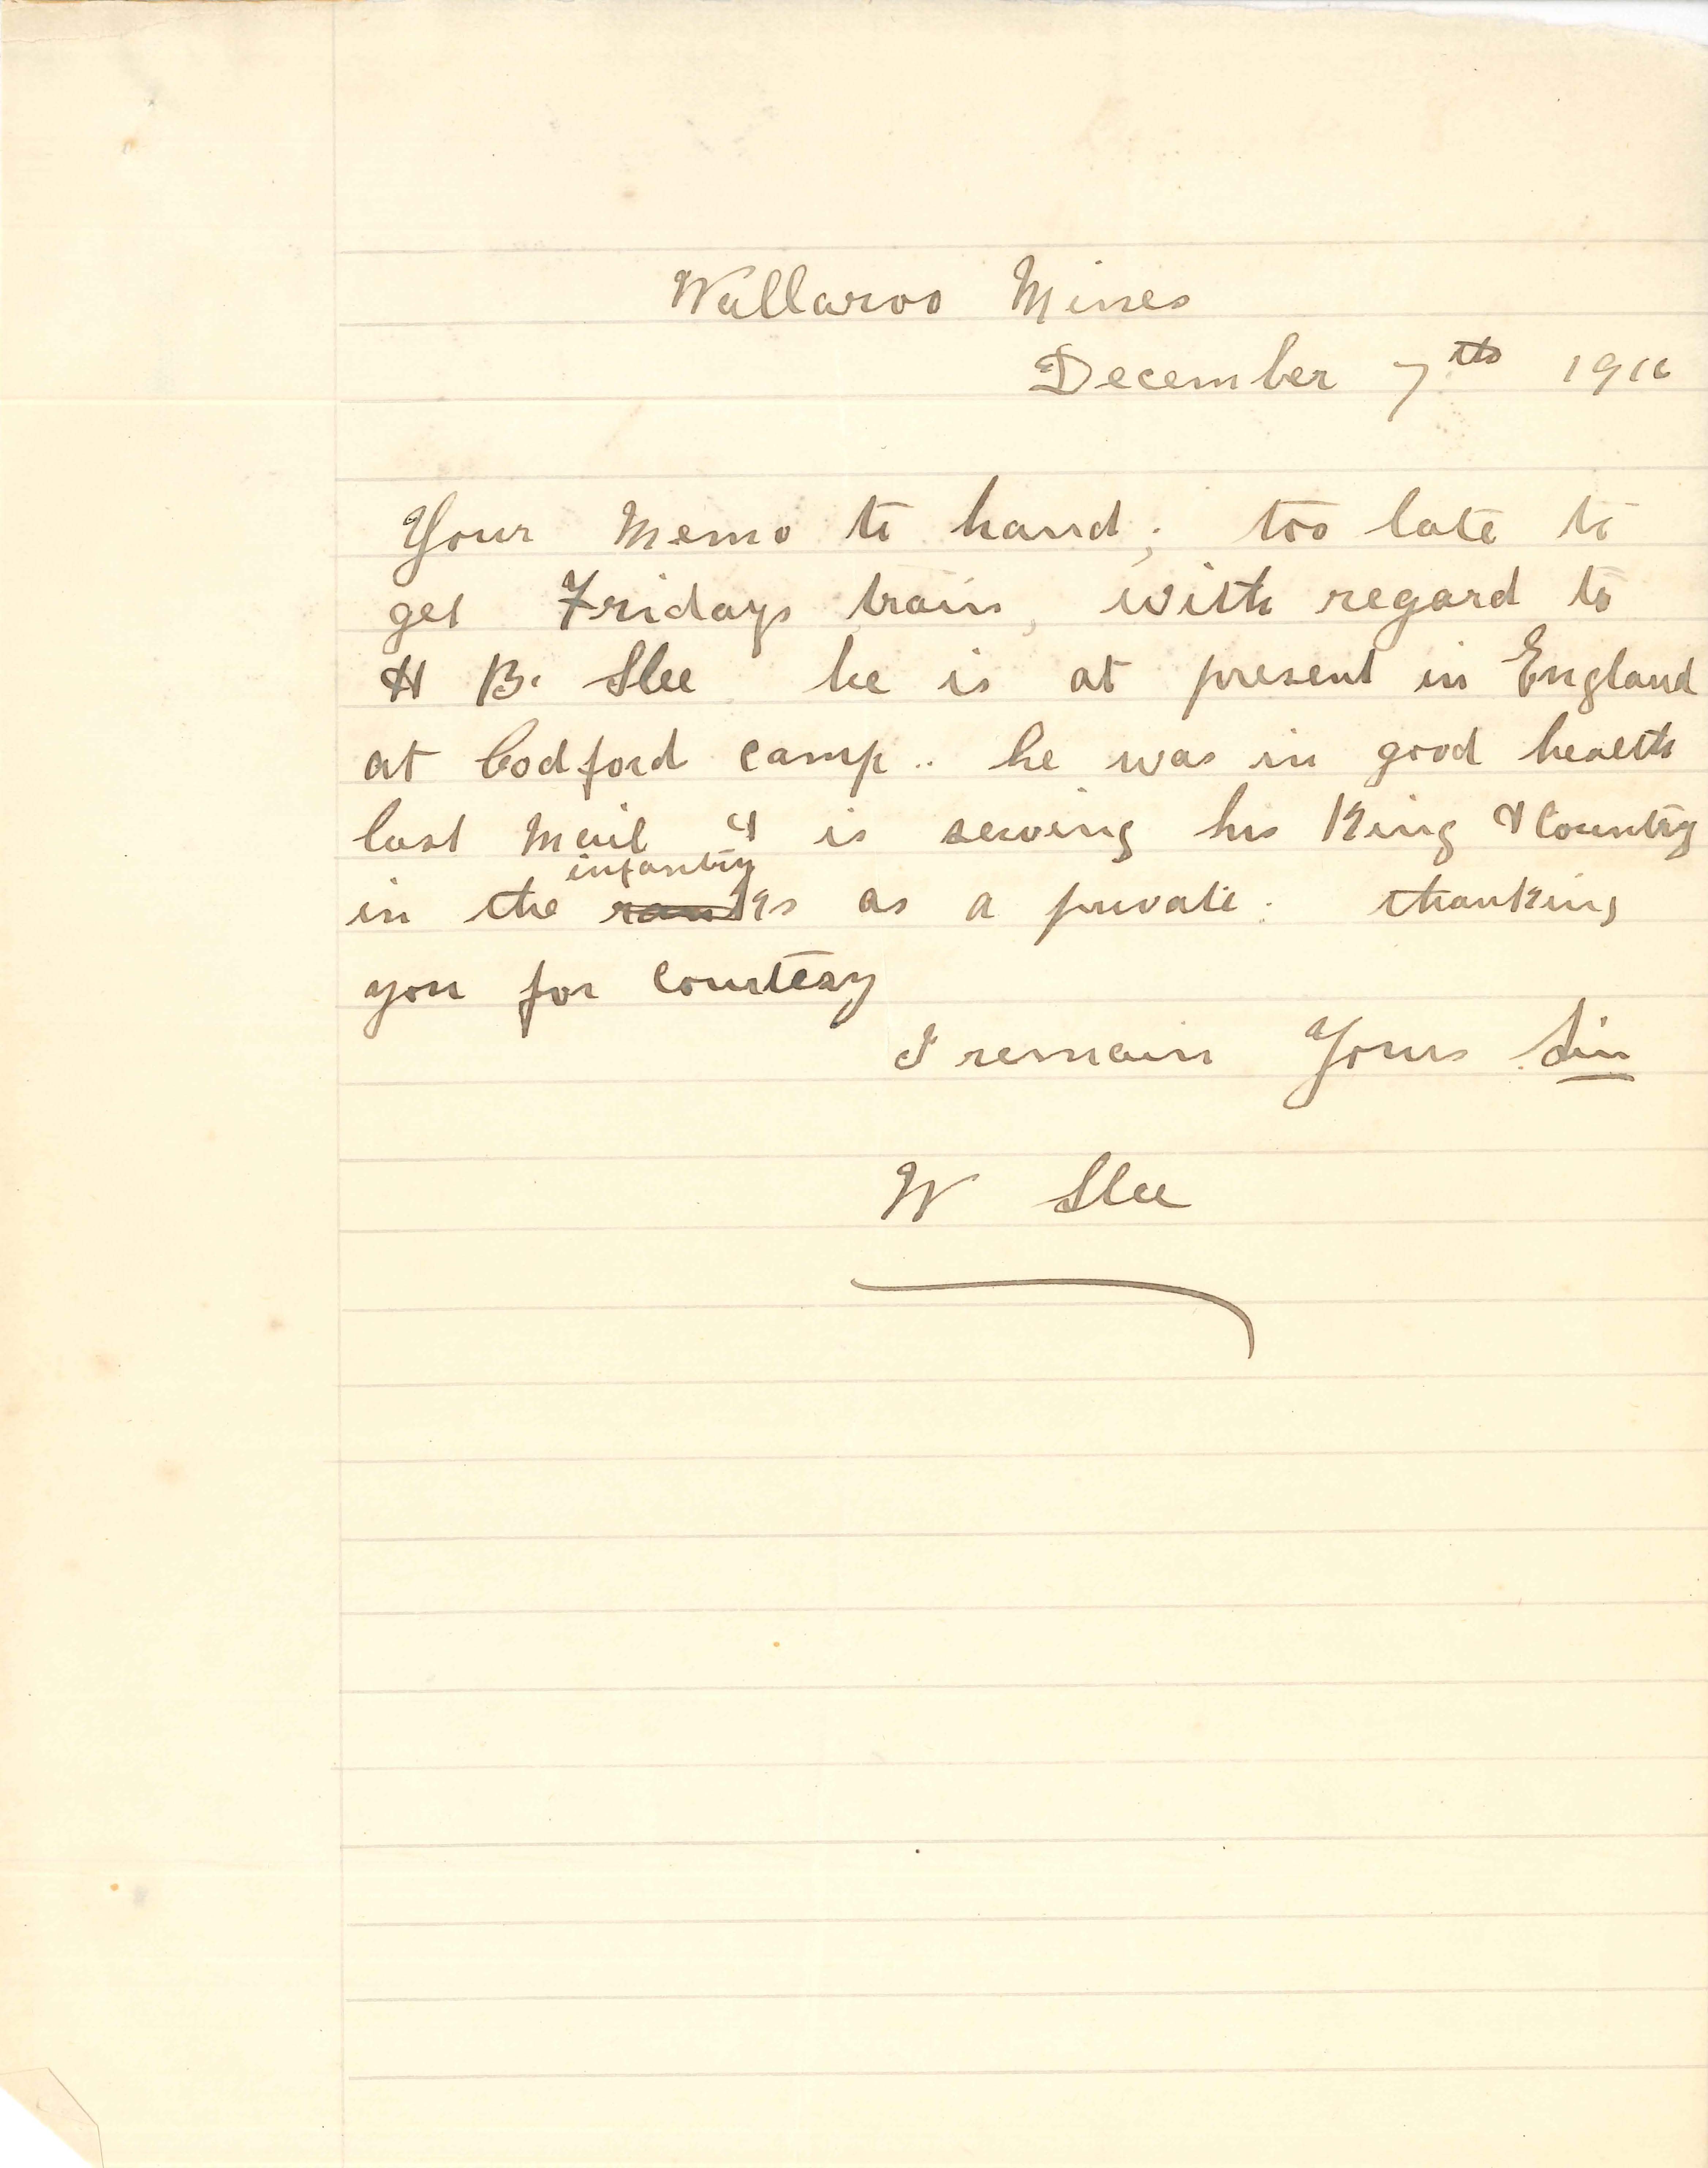 Wallaroo Mines
December 7th 1916
Your Memo to hand; too late to
get Fridays train, with regard to
H B. Slee he is at present in England
at Codford camp.. he was in good health
last Mail & is serving his King & Country
infantry
in the ranks as a private. thanking
you for Courtesy
I remain Yours Sin
W Slee